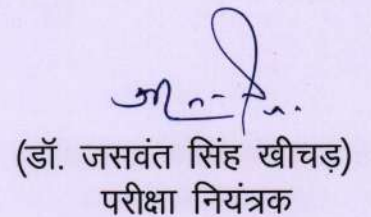 (डॉ. जसवंत सिंह खीचड़)
परीक्षा नियंत्रक